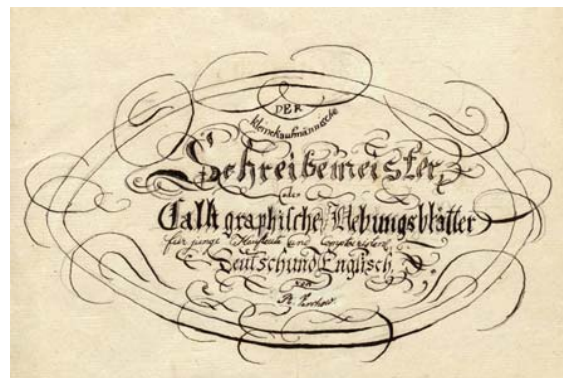 DER
kleine kaufmännische
Schreibemeister,
oder
Calligraphische Uebungsblätter
für junge Kaufleute und Comptoiristen
Deutsch und Englisch,
von